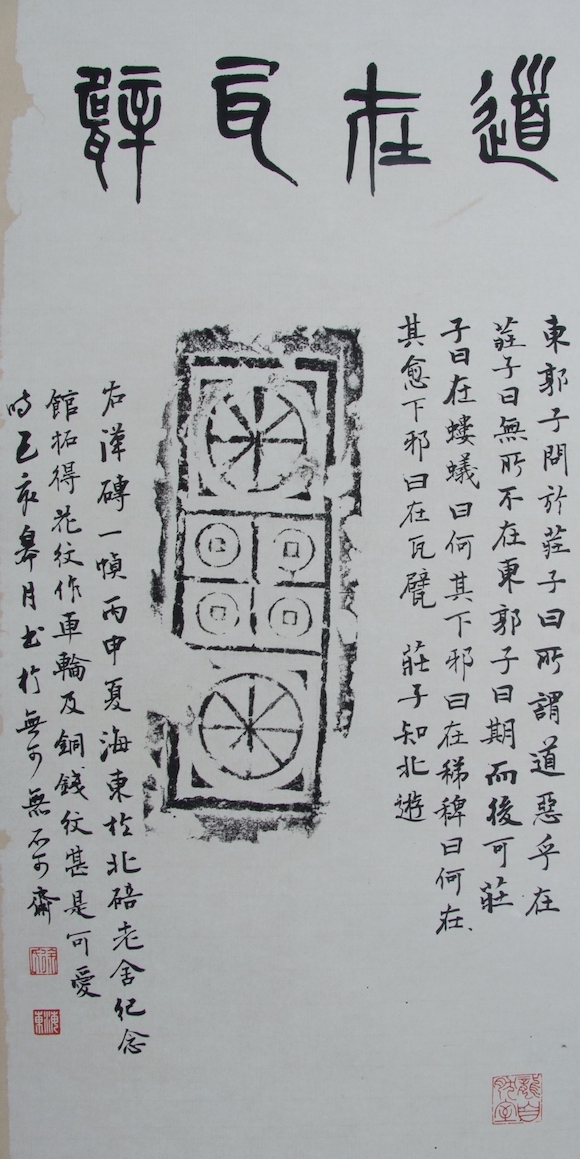 道在瓦甓
東郭子問於莊子曰所謂道惡乎在
莊子曰無所不在東郭子曰期而後可莊
子曰在螻蟻曰何其下邪曰在稊稗曰何在
其愈下邪曰在瓦甓 莊子知北遊
右漢磚一幀丙申夏海東於北碚老舍紀念
館拓得花紋作車輪及銅錢紋甚是可愛
時己亥皋月书於無可無不可齋
海東